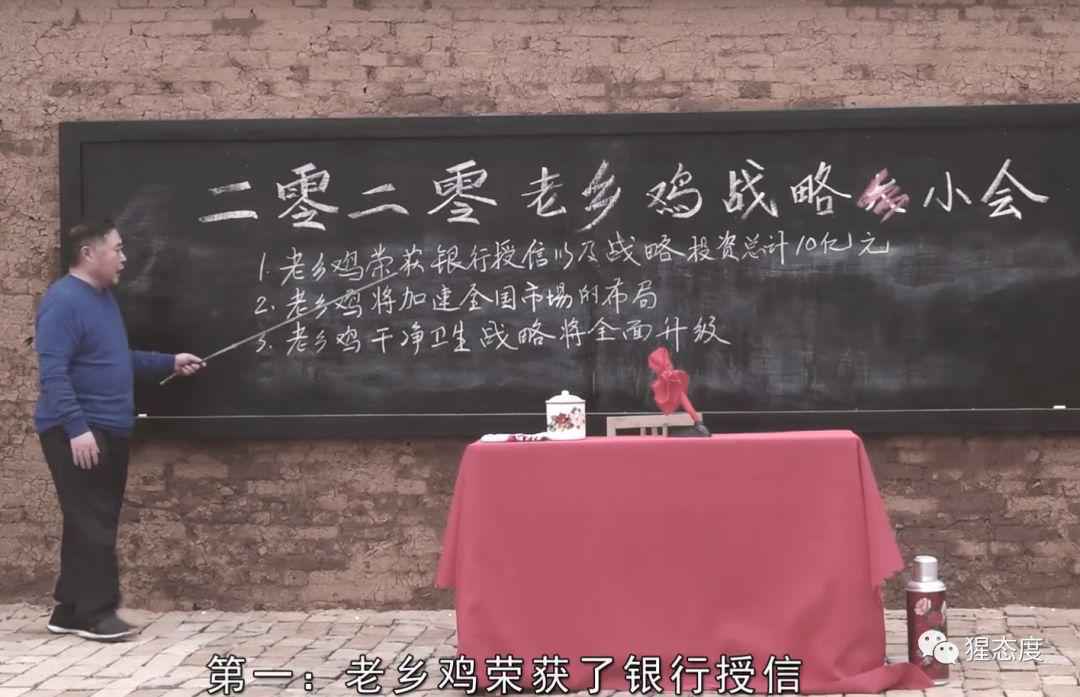 二零二零老乡鸡战略小会
1. 老乡鸡荣获银行授信以及战略投资总计10亿元
2. 老乡鸡将加速全国市場的布局
3. 老乡鸡干净卫生战略将全面升级
第一：老乡鸡荣获了银行授信
猩态度